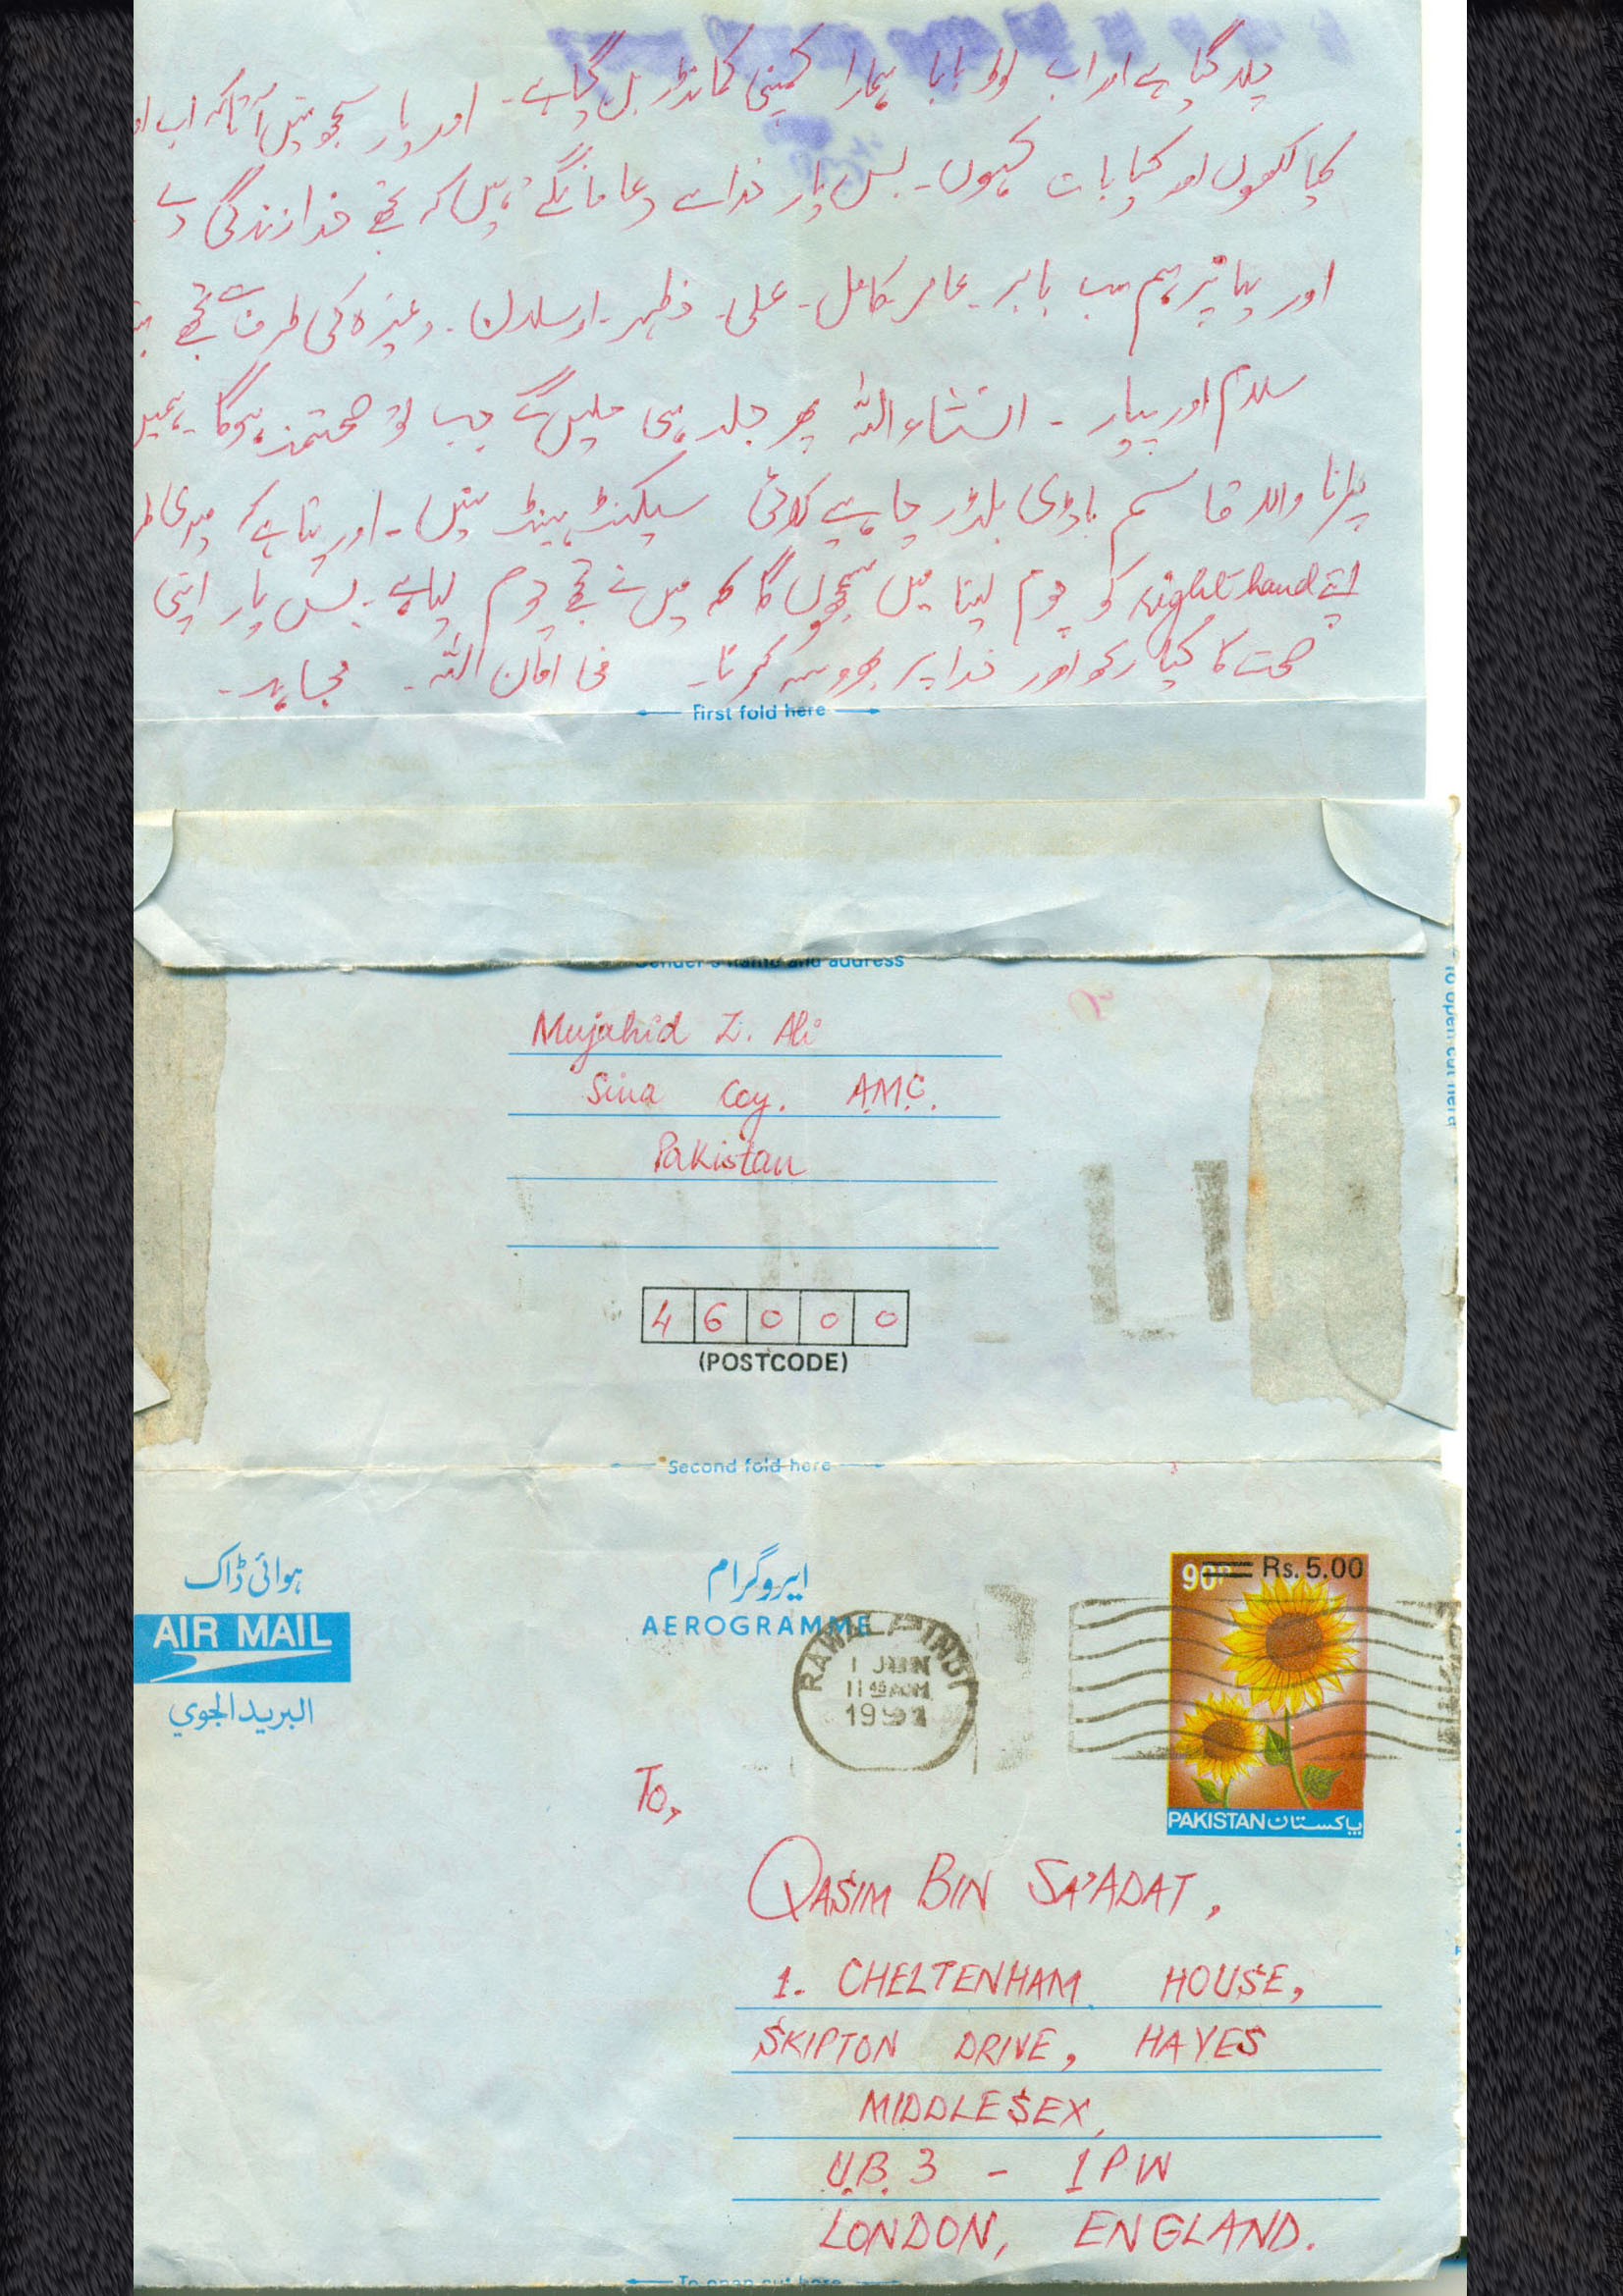 چلا گیا ہے اور اب لولو بابا ہمارا کمپنی کمانڈر بن گیا ہے۔ اور یار سمجھ نہیں آتا کہ اب
کیا لکھوں اور کیا بات کہوں۔ بس یار خدا سے دعا مانگتے ہیں کہ تجھے خدا زندگی دے
اور یہاں پر ہم سب بابر۔ عامر۔ کامل۔ علی۔ اور سلان۔ وغیرہ کی طرف سے تجھے
سلام اور پیار۔ انشاء اللہ پھر جلد ہی ملیں گے جب تو صحتمند ہوگا۔ ہمیں
پرانا والا قاسم باڈی بلڈر چاہیے کلائی سیکنڈ ہینڈ نہیں۔ اور پتا ہے کہ میری
اپنے right hand کو چوم لینا میں سمجھوں گا کہ میں نے تجھے چوم لیا ہے۔ بس یار اپنی
صحت کا خیال رکھو اور خدا پر بھروسہ کرنا۔ فی امان اللہ۔ مجاہد۔
First fold here
Sender's name and address
To open cut here
Mujahid Z. Ali
Sina Coy. A.M.C.
Pakistan
46000
(POSTCODE)
Second fold here
ہوائی ڈاک
ایروگرام
90P Rs. 5.00
AIR MAIL
AEROGRAMME
البريد الجوي
RAWALPINDI
1 JUN
1145AM
199
PAKISTAN پاکستان
To,
QASIM BIN SA'ADAT,
1. CHELTENHAM HOUSE,
SKIPTON DRIVE, HAYES
MIDDLESEX,
U.B. 3 - 1PW
LONDON, ENGLAND.
To open cut here